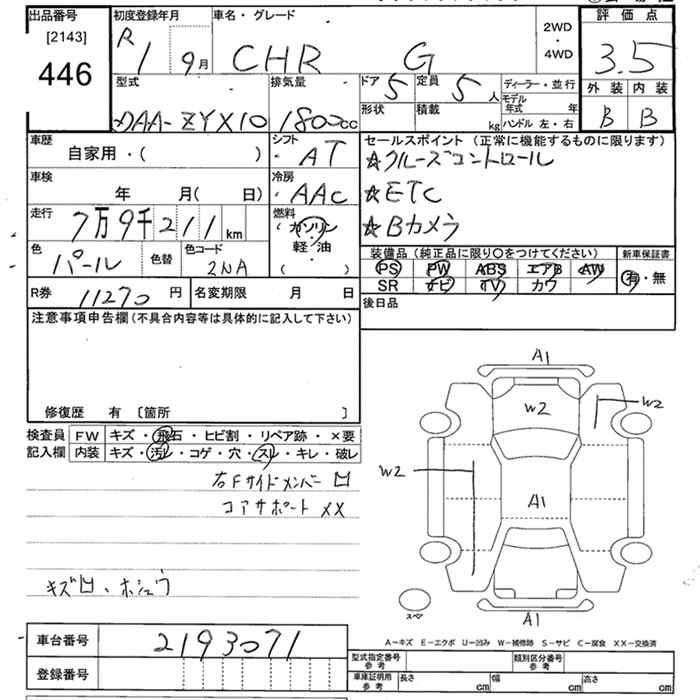 出品番号 初度登録年月 車名・グレード 2WD 評価点
[2143] R 1 9月 CHR G ・4WD 3.5
446 型式 排気量 ドア 定員 ディーラー・並行 外装 内装
DAA-ZYX10 1800cc 5 5人 モデル年式 年 B B
形状 積載 kg ハンドル 左・右
車歴 シフト セールスポイント (正常に機能するものに限ります)
自家用・( ) AT ☆クルーズコントロール
車検 冷房 ☆ETC
年 月( 日) AAC ☆Bカメラ
走行 7万9千211km 燃料 ガソリン 軽・油 ( ・ )
色 パール 色替 色コード 2NA
装備品 (純正品に限り〇をつけてください) 新車保証書
PS PW ABS エアB AW 有・無
SR ナビ TV カワ
R券 11270円 名変期限 月 日 後日品
注意事項申告欄 (不具合内容等は具体的に記入して下さい)
修復歴 有 〔箇所 〕
検査員 FW キズ・飛石・ヒビ割・リペア跡・×要
記入欄 内装 キズ・汚レ・コゲ・穴・スレ・キレ・破レ
右Fサイドメンバー凹
コアサポートXX
キズ凹、ホシュウ
A1
W2
W2
W2
A1
スペア
A1
A-キズ E-エクボ U-凹み W-補修跡 S-サビ C-腐食 XX-交換済
車台番号 2193071
登録番号
型式指定番号 参考 類別区分番号 参考
車庫証明用 参考 長さ cm 幅 cm 高さ cm